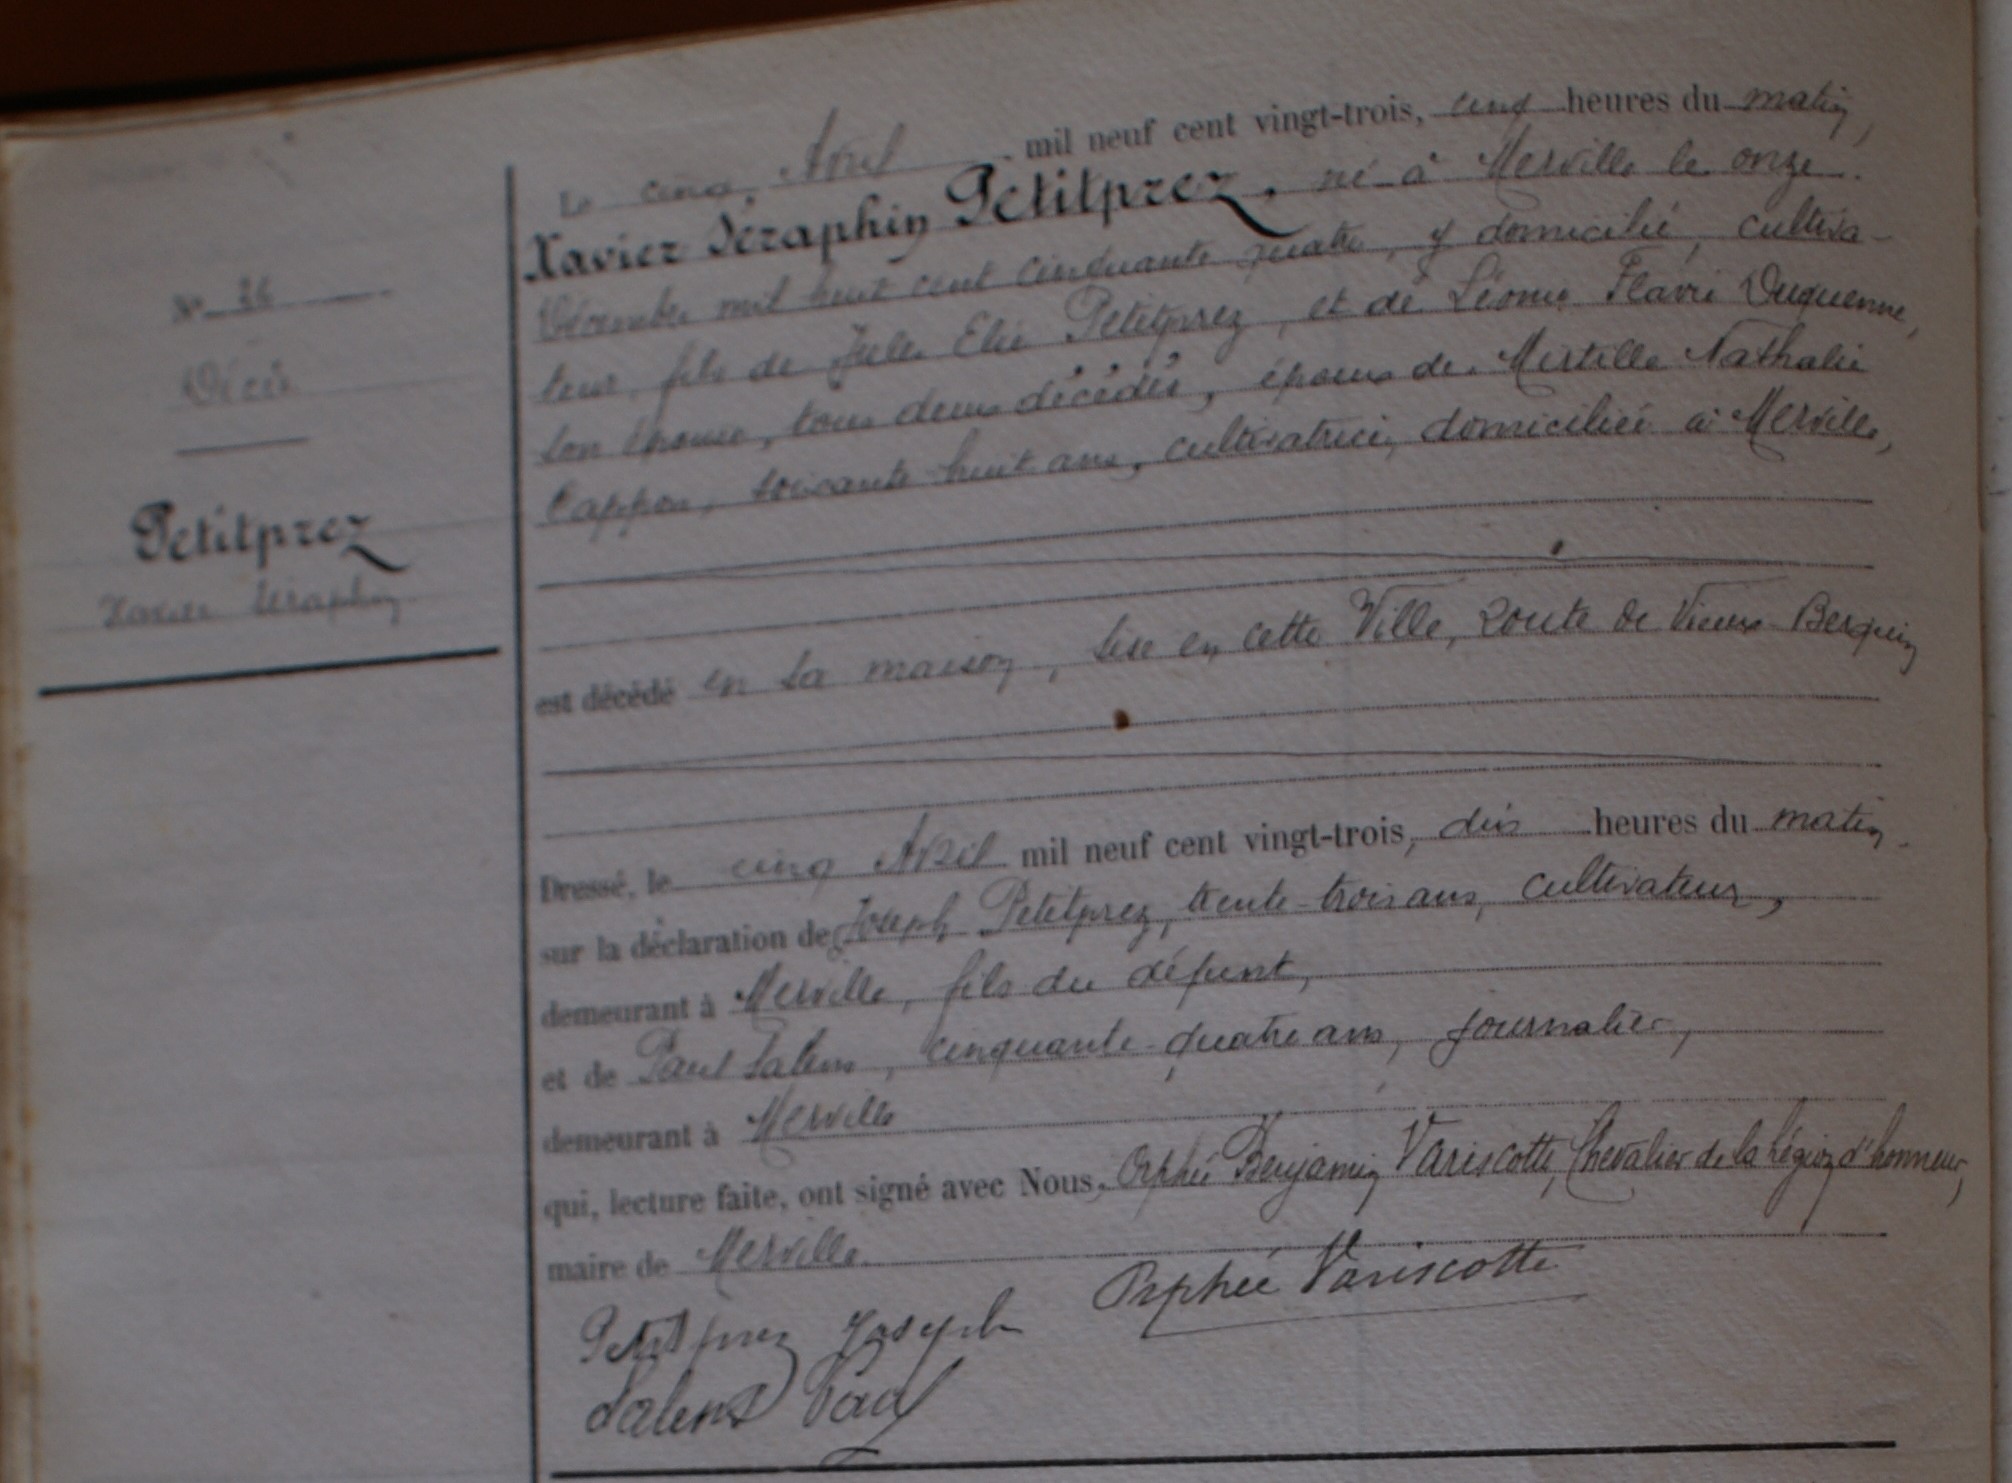 N° 26
Décès
Petitprez
Xavier Séraphin
Le cinq Avril mil neuf cent vingt-trois, cinq heures du matin,
Xavier Séraphin Petitprez, né à Merville le onze
Décembre mil huit cent cinquante quatre, y domicilié, cultiva-
teur, fils de Jules Elie Petitprez, et de Léonie Flavie Duquenne,
son épouse, tous deux décédés, époux de Mirtille Nathalie
Cappon, soixante-huit ans, cultivatrice, domiciliée à Merville,
est décédé en sa maison, sise en cette Ville, route de Vieux-Berquin
Dressé, le cinq Avril mil neuf cent vingt-trois, dix heures du matin,
sur la déclaration de Joseph Petitprez, trente-trois ans, cultivateur,
demeurant à Merville, fils du défunt,
et de Paul Salens, cinquante-quatre ans, journalier,
demeurant à Merville
qui, lecture faite, ont signé avec Nous, Orphée Benjamin Variscotte, Chevalier de la Légion d'honneur,
maire de Merville.
Petitprez Joseph Orphée Variscotte
Salens Paul